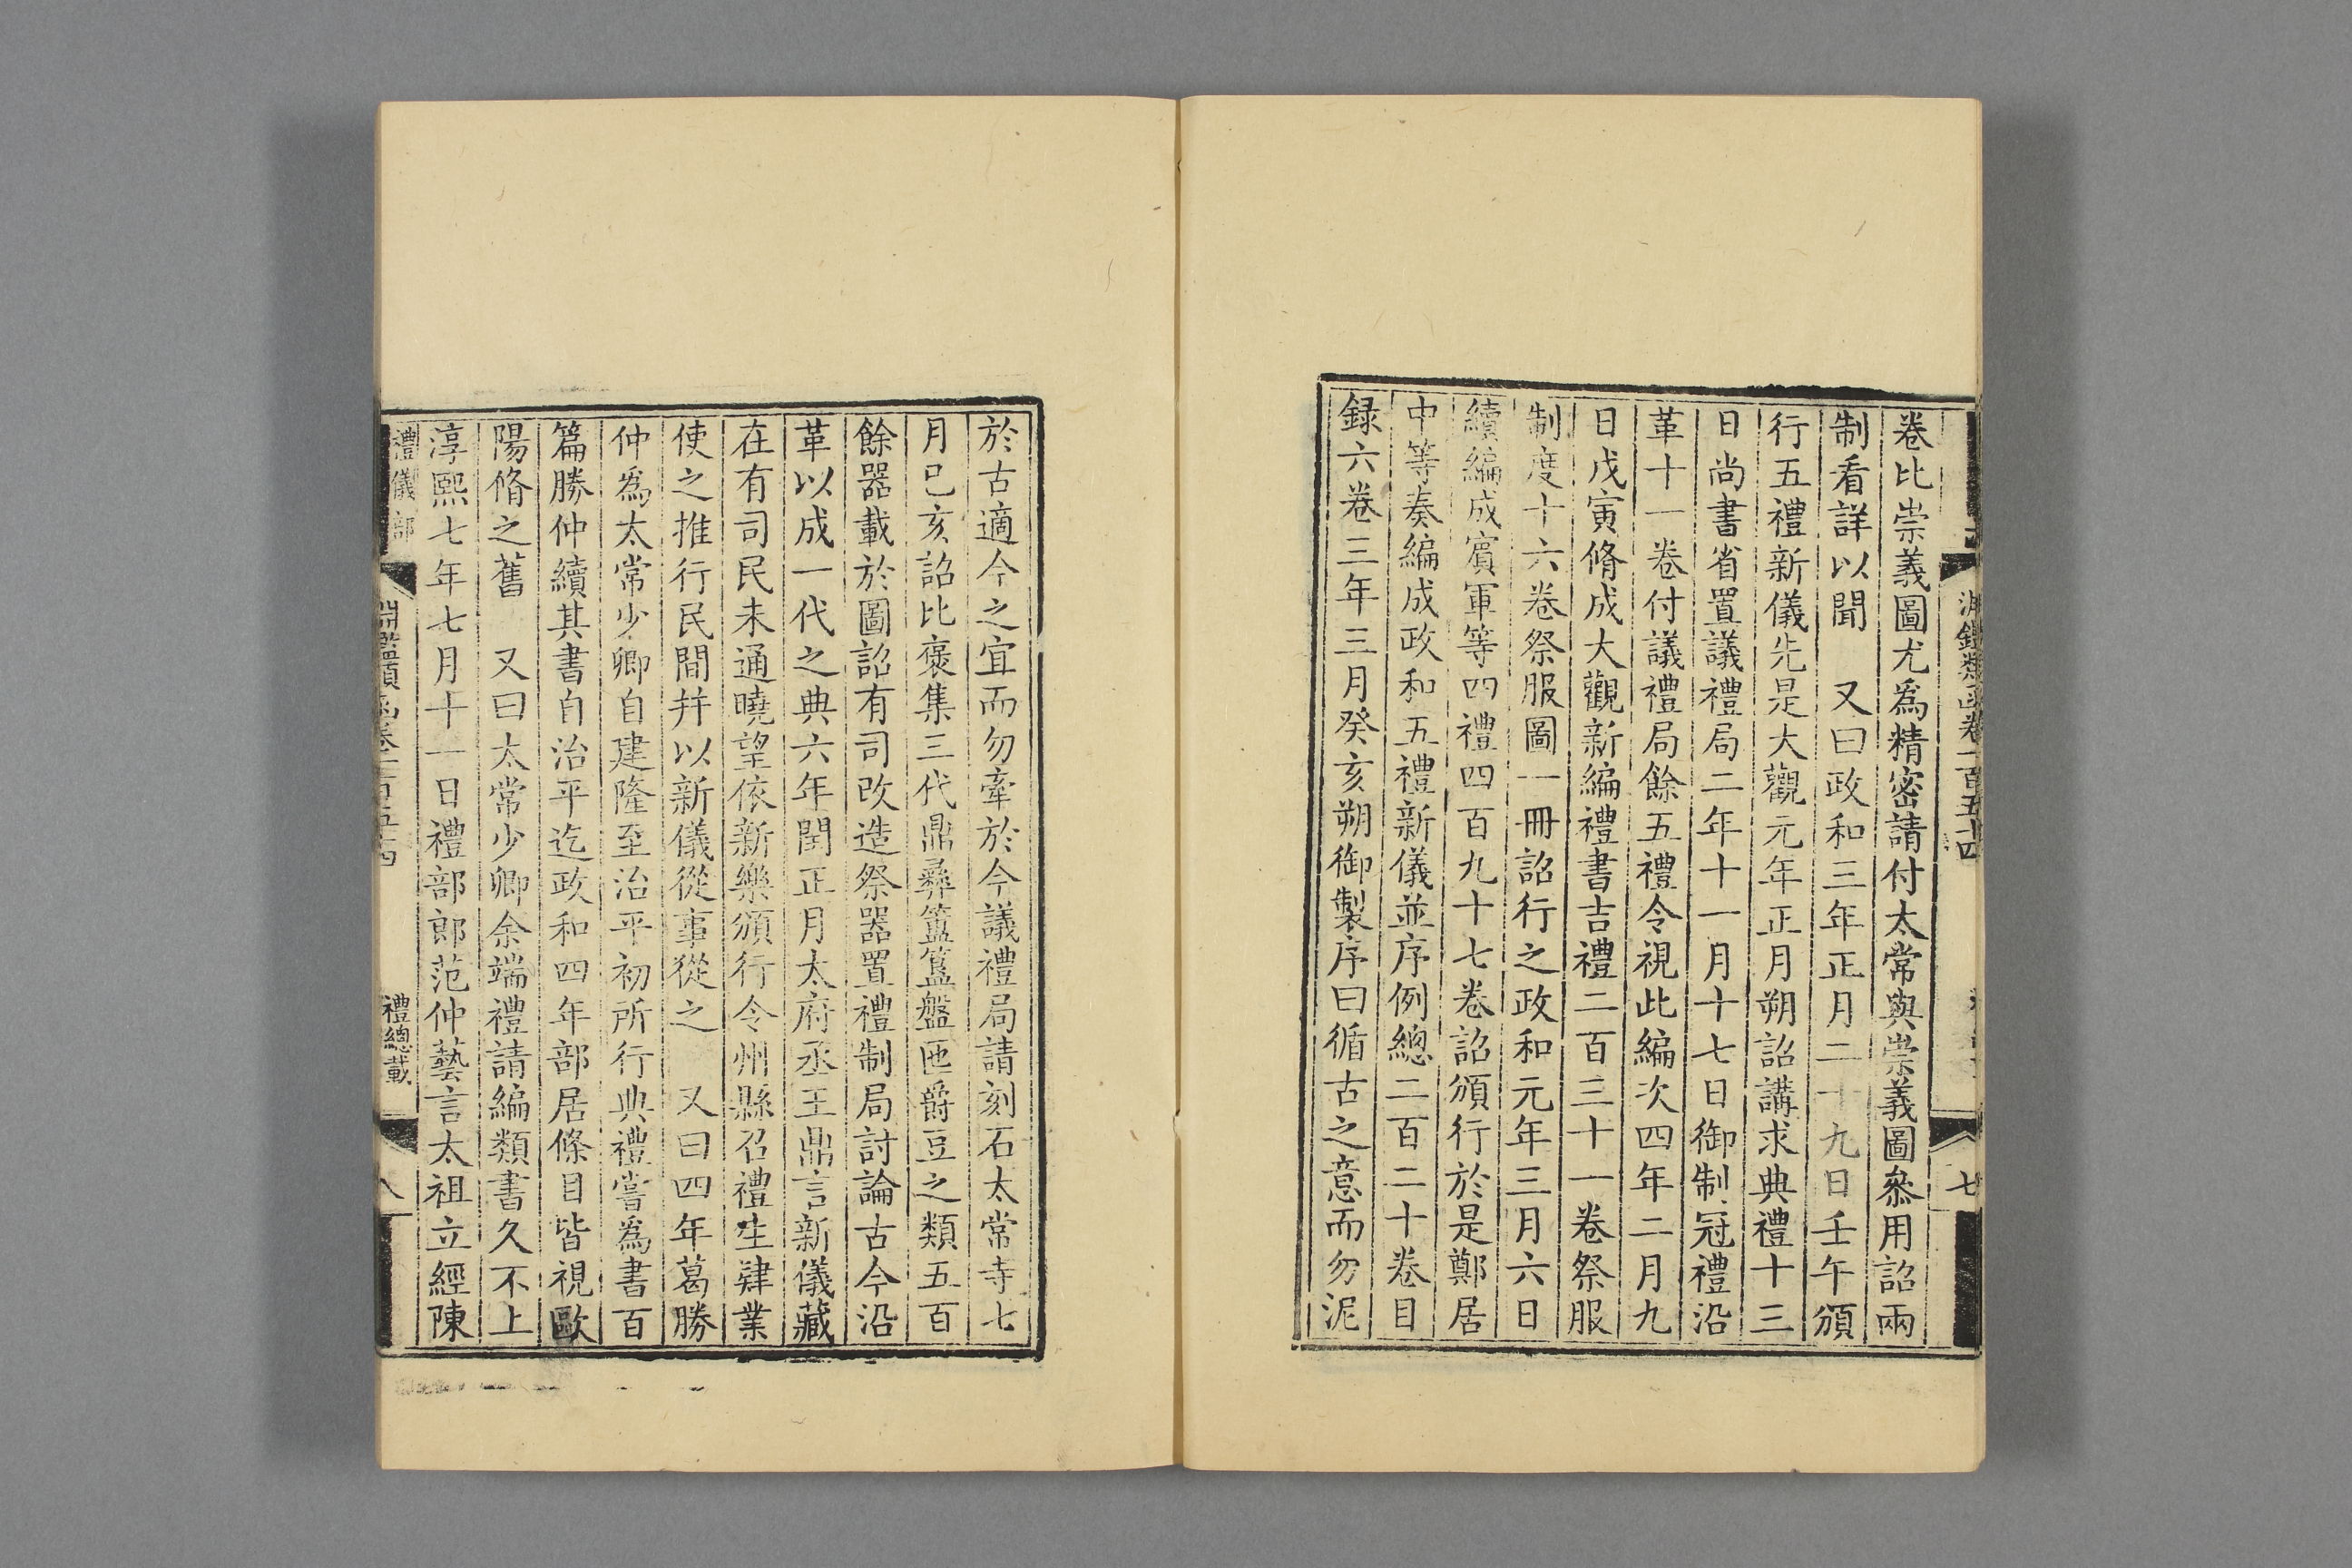 淵鑑類函卷一百五十四
七
卷比崇義圖尤爲精密請付太常與崇義圖叅用詔兩
制看詳以聞 又曰政和三年正月二十九日壬午頒
行五禮新儀先是大觀元年正月朔詔講求典禮十三
日尚書省置議禮局二年十一月十七日御制冠禮沿
革十一卷付議禮局餘五禮令視此編次四年二月九
日戊寅脩成大觀新編禮書吉禮二百三十一卷祭服
制度十六卷祭服圖一冊詔行之政和元年三月六日
續編成賓軍等四禮四百九十七卷詔頒行於是鄭居
中等奏編成政和五禮新儀並序例總二百二十卷目
録六卷三年三月癸亥朔御製序曰循古之意而勿泥
於古適今之宜而勿牽於今議禮局請刻石太常寺七
月己亥詔比褒集三代鼎彝簠簋盤匜爵豆之類五百
餘器載於圖詔有司改造祭器置禮制局討論古今沿
革以成一代之典六年閏正月太府丞王鼎言新儀藏
在有司民未通曉望依新樂頒行令州縣召禮生肄業
使之推行民間幷以新儀從事從之 又曰四年葛勝
仲爲太常少卿自建隆至治平初所行典禮嘗爲書百
篇勝仲續其書自治平迄政和四年部居條目皆視歐
陽脩之舊 又曰太常少卿余端禮請編類書久不上
淳熙七年七月十一日禮部郎范仲藝言太祖立經陳
禮儀部
淵鑑類函卷一百五十四
禮總載
八